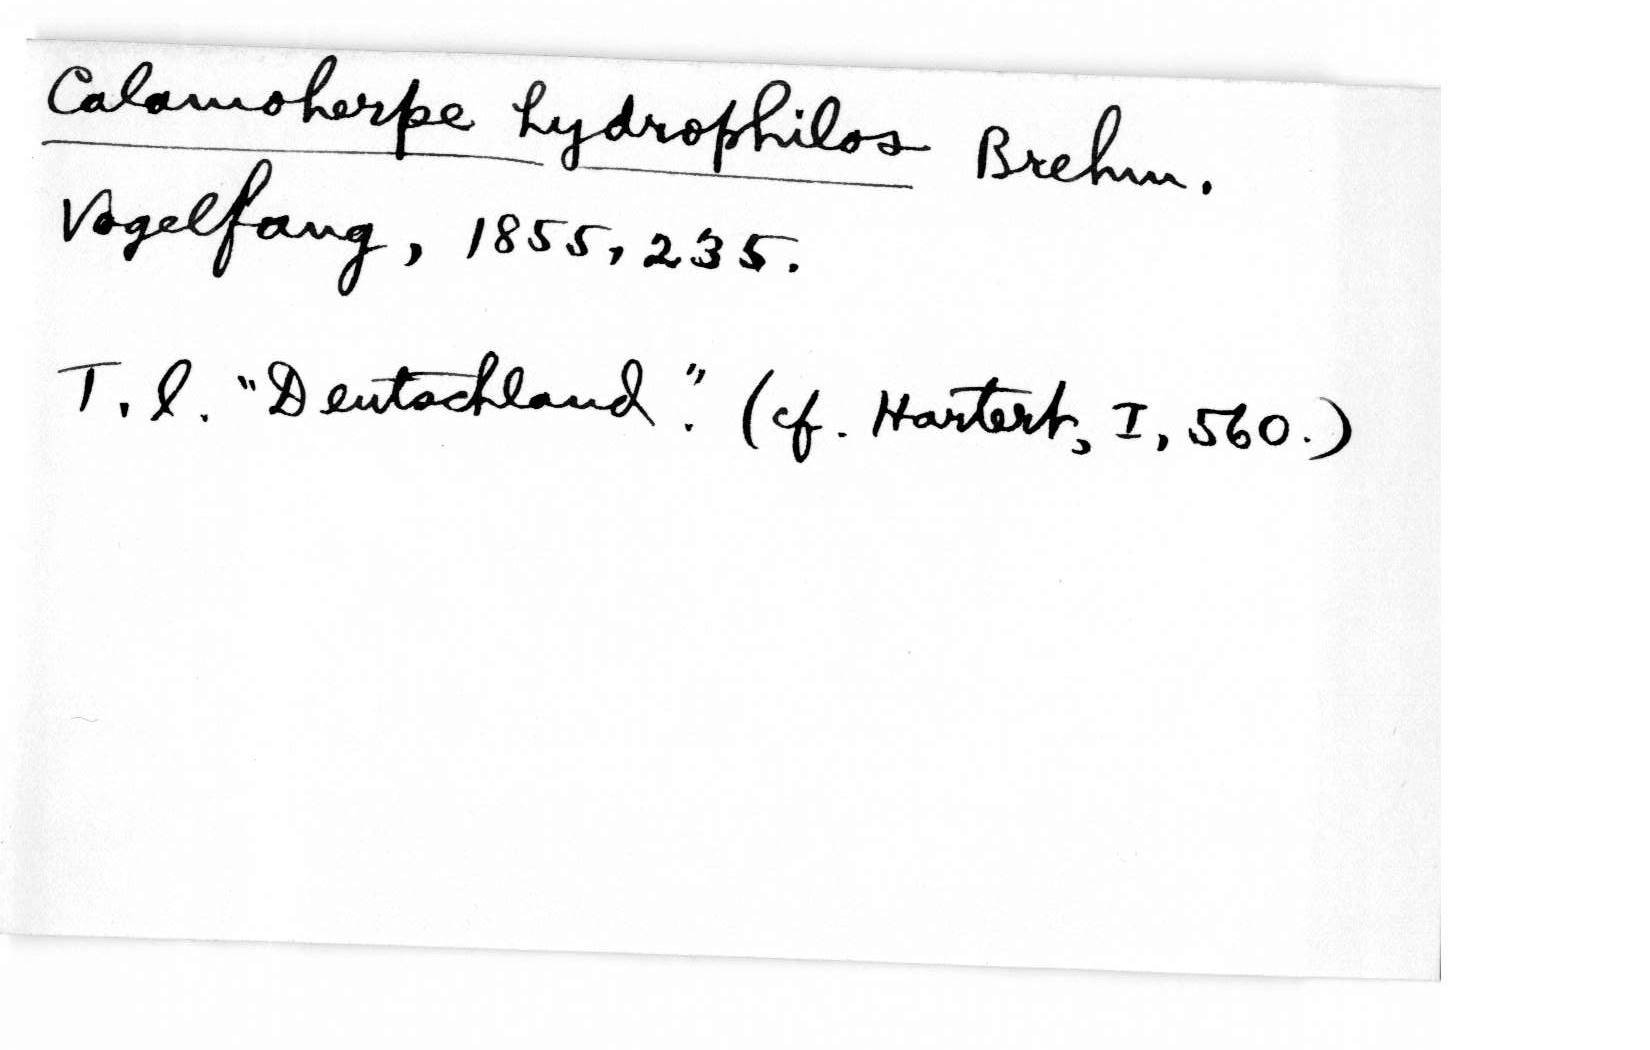 Calamoherpe hydrophilos Brehm.
Vogelfang, 1855, 235.
T. l. "Deutschland". (cf. Hartert, I, 560.)